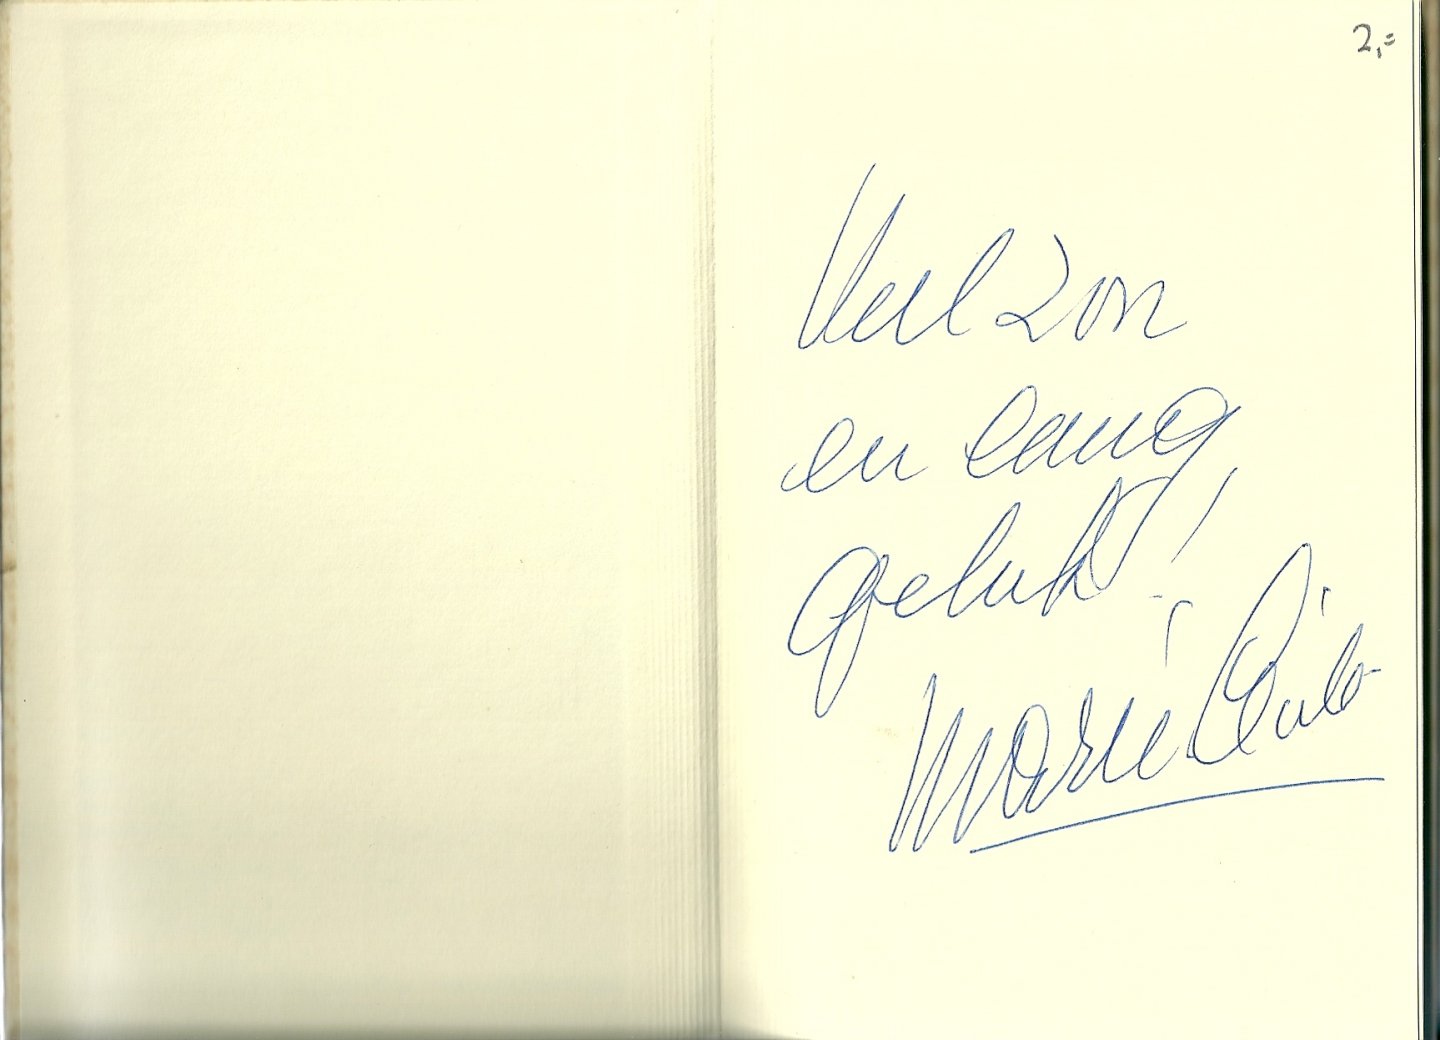 2,=
Veel zon
en lang
geluk!
Marie Cilo